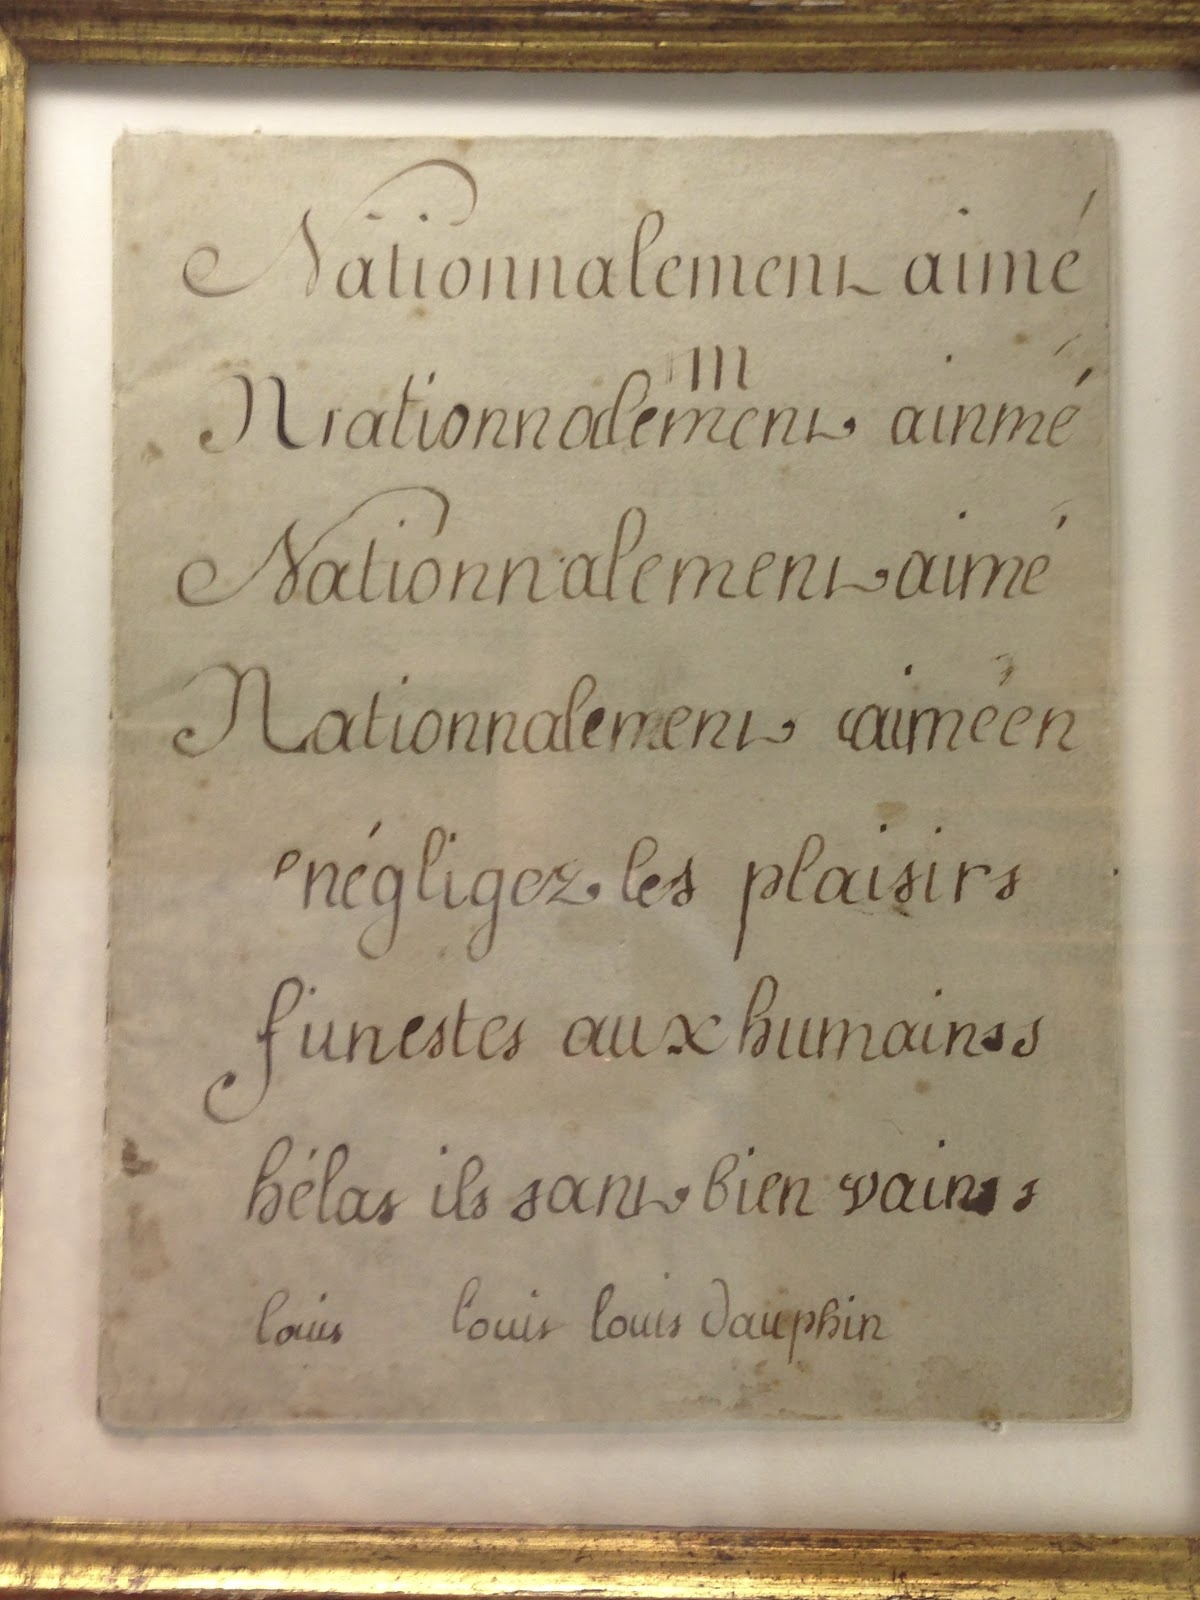 Nationnalement aimé
m
Nationnalement ainmé
Nationnalement aimé
Nationnalement aiméen
négligez les plaisirs
funestes aux humainss
hélas ils sant bien vainss
louis louis louis dauphin